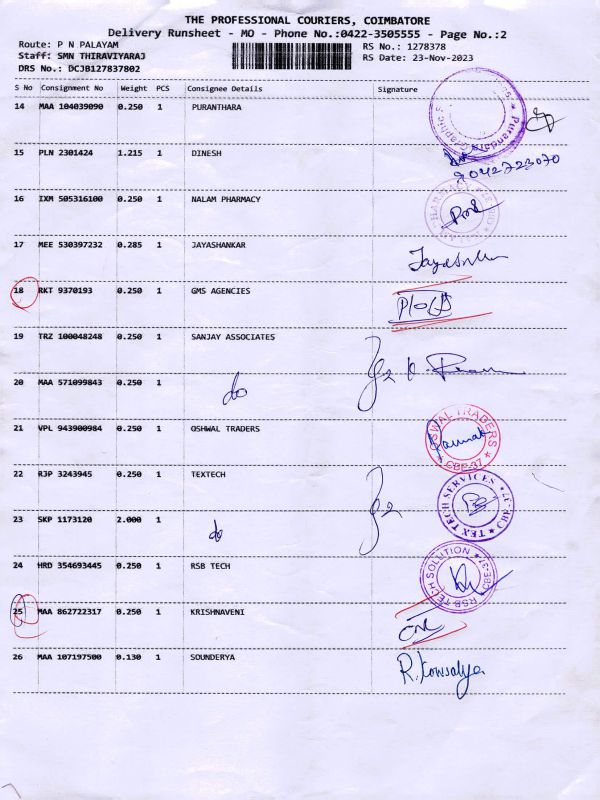 THE PROFESSIONAL COURIERS, COIMBATORE
Delivery Runsheet - MO - Phone No.:0422-3505555 - Page No.:2
Route: P N PALAYAM
RS No.: 1278378
Staff: SMN THIRAVIYARAJ
RS Date: 23-Nov-2023
DRS No.: DCJB127837802
S No Consignment No Weight PCS Consignee Details Signature
14 MAA 104039090 0.250 1 PURANTHARA
15 PLN 2301424 1.215 1 DINESH
9042723070
16 IXM 505316100 0.250 1 NALAM PHARMACY
17 MEE 530397232 0.285 1 JAYASHANKAR
18 RKT 9370193 0.250 1 GMS AGENCIES
19 TRZ 100048248 0.250 1 SANJAY ASSOCIATES
20 MAA 571099843 0.250 1 do
21 VPL 943900984 0.250 1 OSHWAL TRADERS
OSWAL TRADERS
CBE-37
22 RJP 3243945 0.250 1 TEXTECH
TEX TECH SERVICES
CBE-37
23 SKP 1173120 2.000 1 do
24 HRD 354693445 0.250 1 RSB TECH
RSB TECH SOLUTION
CBE-37
25 MAA 862722317 0.250 1 KRISHNAVENI
26 MAA 107197500 0.130 1 SOUNDERYA
R. Kowsalya